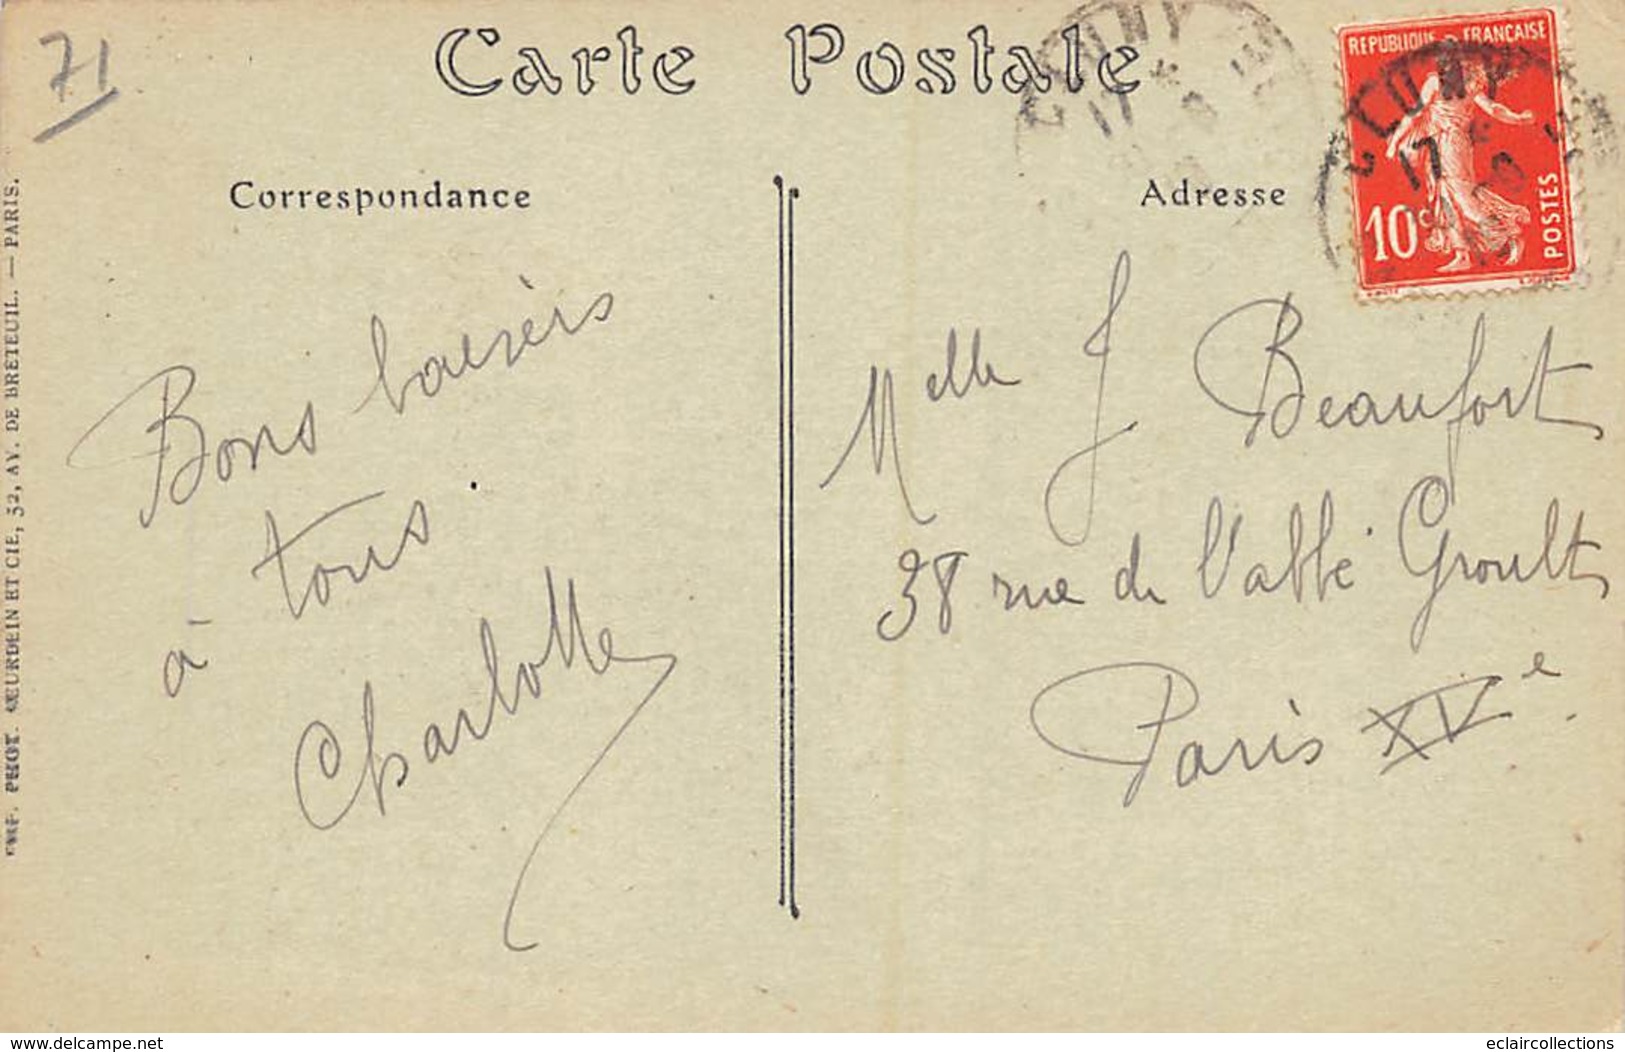 71
Carte Postale
CLUNY
17
REPUBLIQUE FRANÇAISE
CLUNY
17
10c
POSTES
Correspondance
Adresse
Bons baisers
à tous.
Charlotte
Melle J Beaufort
38 rue de l'abbé Groult
Paris XVe.
PHOT. NEURDEIN ET CIE, 52, AV. DE BRETEUIL. — PARIS.
www.delcampe.net
eclaircollections